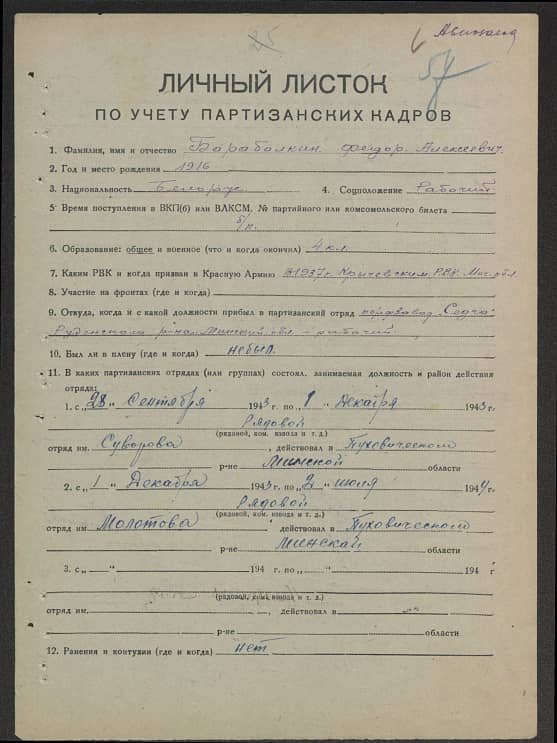 25
57
ЛИЧНЫЙ ЛИСТОК
ПО УЧЕТУ ПАРТИЗАНСКИХ КАДРОВ
1. Фамилия, имя и отчество Барабалкин Федор Алексеевич.
2. Год и место рождения 1916
3. Национальность Белорус 4. Соцположение Рабочий
5. Время поступления в ВКП(б) или ВЛКСМ, № партийного или комсомольского билета
б/п.
6. Образование: общее и военное (что и когда окончил) 4 кл.
7. Каким РВК и когда призван в Красную Армию В 1937 г. Кричевским РВК Мог. обл
8. Участие на фронтах (где и когда)
9. Откуда, когда и с какой должности прибыл в партизанский отряд
Руденского р-на Минской обл. – рабочий.
10. Был ли в плену (где и когда) не был.
11. В каких партизанских отрядах (или группах) состоял, занимаемая должность и район действия
отряда:
1. с „28“ Сентября 1943 г. по „1“ Декабря 1943 г.
Рядовой
(рядовой, ком. взвода и т. д.)
отряд им. Суворова, действовал в Пуховическом
р-не Минской области
2. с „1“ Декабря 1943 г. по „2“ июля 1944 г.
Рядовой
(рядовой, ком. взвода и т. д.)
отряд им. Молотова действовал в Пуховическом
р-не Минской области
3. с „ “ 194 г. по „ “ 194 г
(рядовой, ком. взвода и т. д.)
отряд им. , действовал в
р-не области
12. Ранения и контузии (где и когда) нет